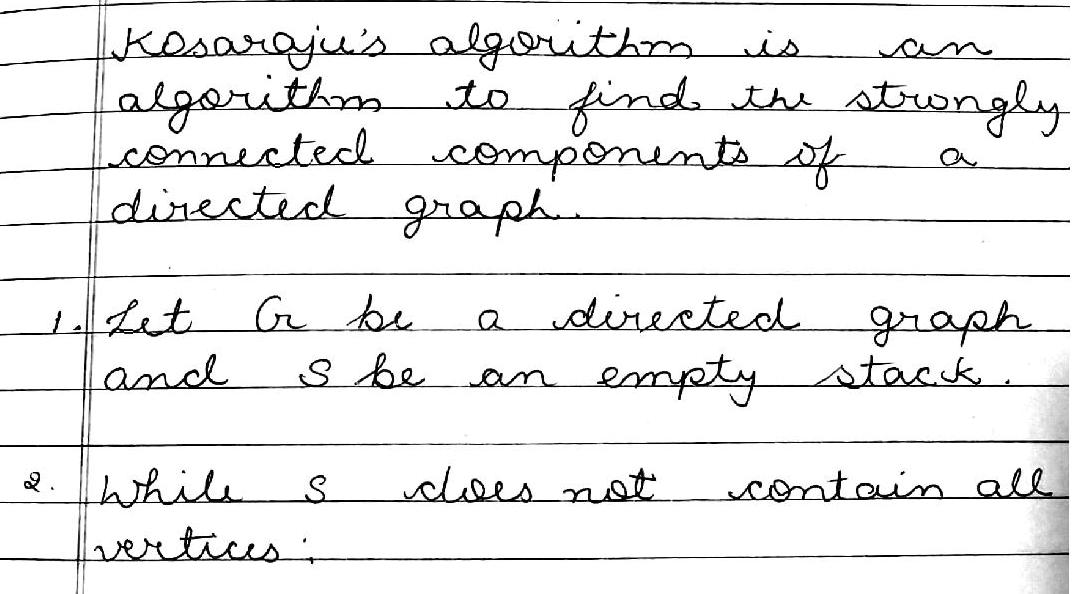 Kosaraju's algorithm is an
algorithm to find the strongly
connected components of a
directed graph.
1. Let G be a directed graph
and S be an empty stack.
2. While S does not contain all
vertices: